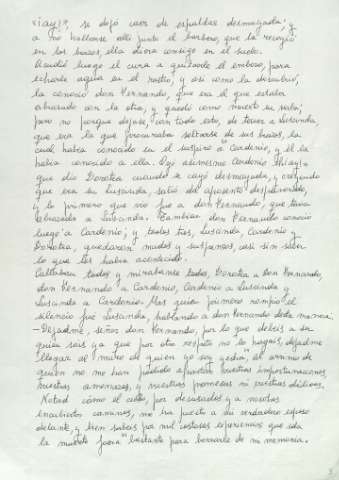 «¡ay!», se dejó caer de espaldas desmayada; y
a no hallarse allí junto el barbero, que la recogió
en los brazos, ella diera consigo en el suelo.
Acudió luego el cura a quitarle el embozo, para
echarle agua en el rostro, y así como la descubrió,
la conoció don Fernando, que era el que estaba
abrazado con la otra, y quedó como muerto en verla;
pero no porque dejase, con todo esto, de tener a Luscinda,
que era la que procuraba soltarse de sus brazos, la
cual había conocido en el suspiro a Cardenio, y él la
había conocido a ella. Oyó asimesmo Cardenio el ¡ay!
que dio Dorotea cuando se cayó desmayada, y creyendo
que era su Luscinda, salió del aposento despavorido,
y lo primero que vio fue a don Fernando, que tenía
abrazada a Luscinda. También don Fernando conoció
luego a Cardenio; y todos tres, Luscinda, Cardenio y
Dorotea, quedaron mudos y suspensos, casi sin saber
lo que les había acontecido.
Callaban todos y mirábanse todos, Dorotea a Don Fernando,
don Fernando a Cardenio, Cardenio a Luscinda y
Luscinda a Cardenio. Mas quien primero rompió el
silencio fue Luscinda, hablando a don Fernando desta manera:
– Dejadme, señor don Fernando, por lo que debéis a ser
quien sois, ya que por otro respeto no lo hagáis, dejadme
llegar al muro de quien yo soy yedra, al arrimo de
quien no me han podido apartar vuestras importunaciones,
vuestras amenazas, y vuestras promesas ni vuestras dádivas.
Notad cómo el cielo, por desusados y a nosotros
encubiertos caminos, me ha puesto a mi verdadero esposo
delante, y bien sabéis por mil costosas experiencias que sola
la muerte fuera bastante para borrarle de mi memoria.